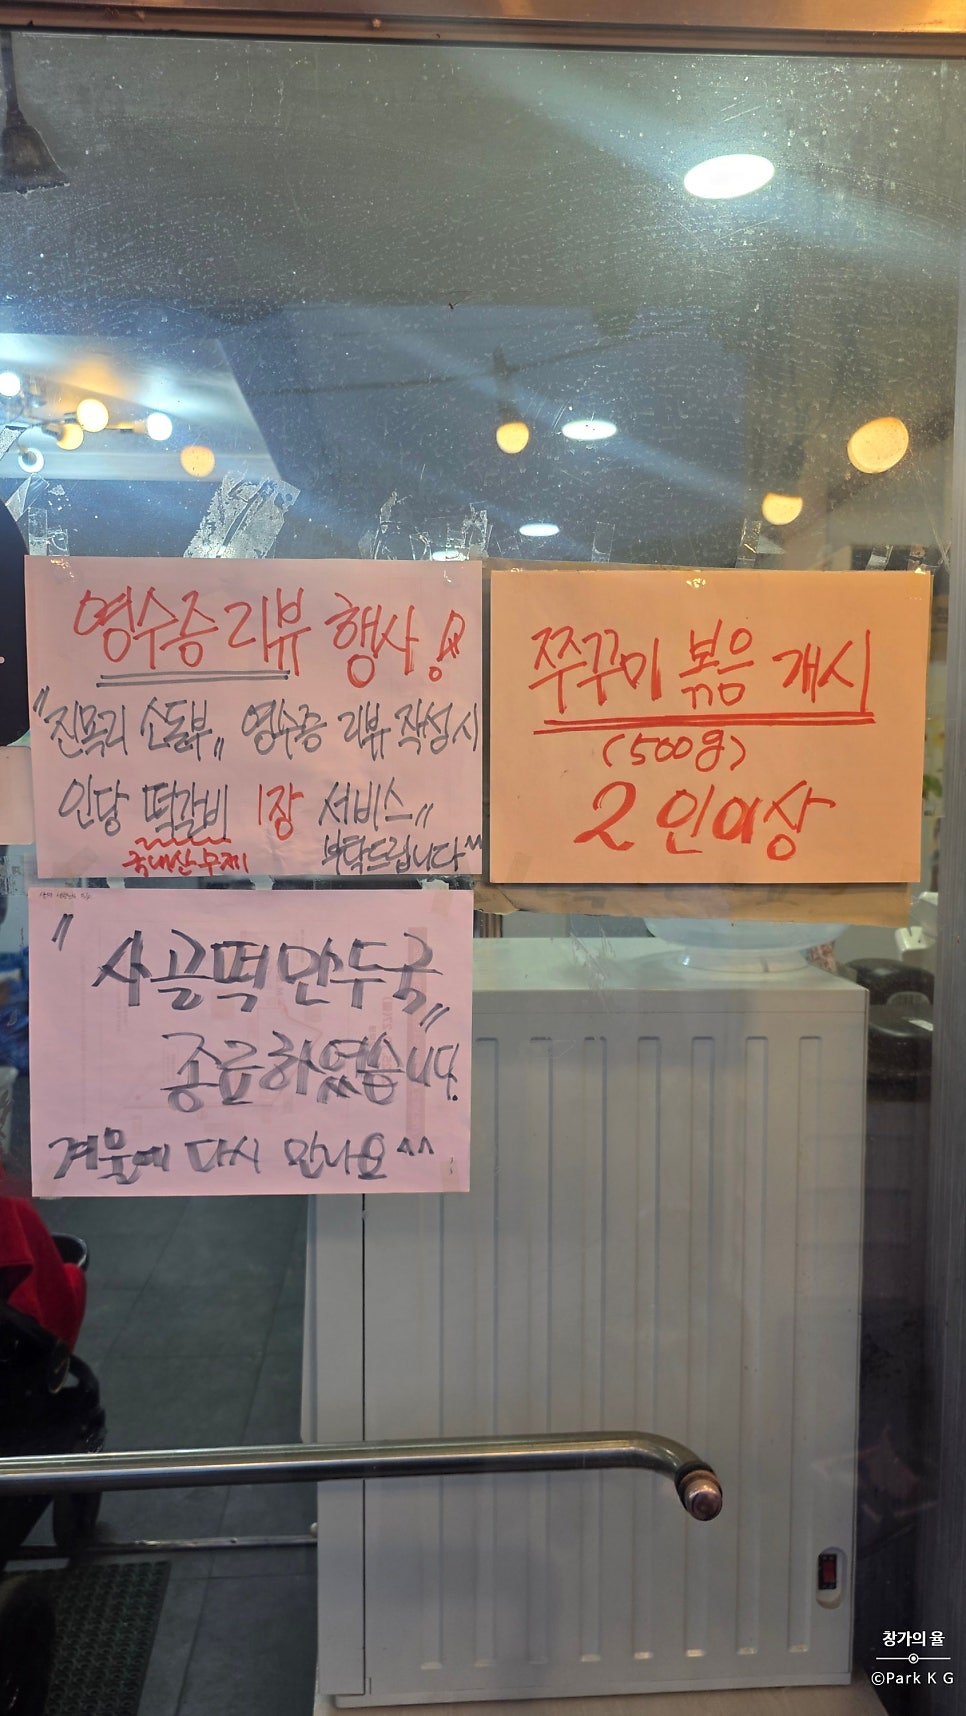 영수증 리뷰 행사!
"진목리 손동부" 영수증 리뷰 작성시
인당 떡갈비 1장 서비스"
국내산 수제
부탁드립니다^^
쭈꾸미 볶음 개시
(500g)
2인이상
"사골떡만두국"
종료하였습니다.
겨울에 다시 만나요^^
창가의 율
©Park K G